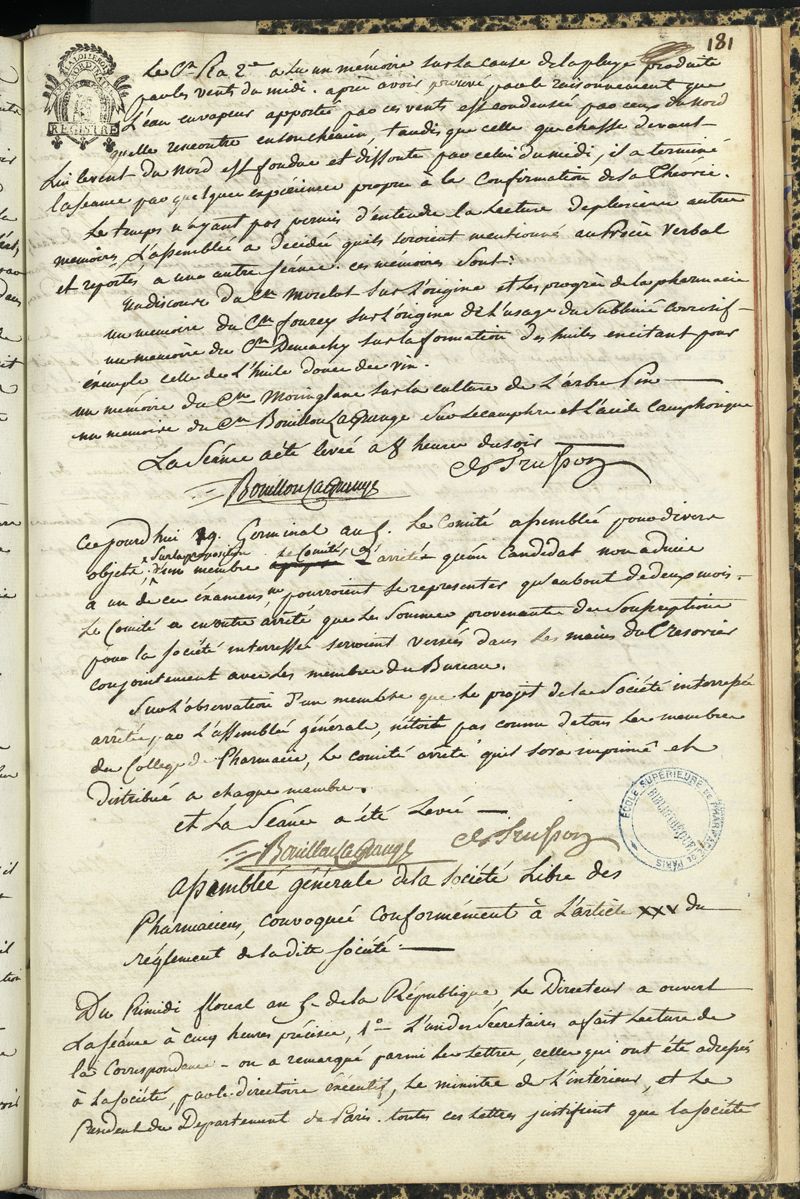 181
LA LOI LE ROI
REGISTRE
Le Cen a lu un mémoire sur la cause de la pluye produite
par les vents du midi. après avoir prouvé par le raisonnement que
L'eau en vapeur apportée par ces vents est condensée par ceux du Nord
quelle rencontre en son chemin, tandis que celle que chasse devant
Lui le vent du Nord est fondue et dissoute par celui du midi, il a terminé
la séance par quelques expériences propres à la confirmation de sa Théorie.
Le temps n'ayant pas permis d'entendre la Lecture de plusieurs autres
memoires, L'assemblée a décidé quils seroient mentionnés au Procès Verbal
et reportés a une autre séance. ces mémoires sont:
un discours du Cen Morelot sur L'origine et les progrès de la pharmacie
un memoire du Cen fourcy sur l'origine de L'usage du sublimé corrosif -
un memoire du Cen Demachy sur la formation des huiles en citant pour
exemple celle de L'huile douce du vin.
un mémoire du Cen Moringlane sur la culture de L'arbre Pin
un memoire du Cen Bouillon LaGrange sur le camphre et l'acide Camphorique
La Séance a été levée à 8 heures du soir
Trusson
Bouillon LaGrange
Ce jourdhui 29. Germinal an 5. Le Comité assemblé pour divers
objets, sur la proposition d'un membre le Comité a arrêté qu'un candidat non admis
a un de ces examens ne pourroient se representer qu'au bout de deux mois.
Le Comité a en outre arrêté que les sommes provenantes des souscriptions
pour la société interressée seroient versées dans les mains du Tresorier
conjointement avec les membres du Bureau.
Sur L'observation d'un membre que le projet de la Société interressée
arrêtée par L'assemblée générale, n'étoit pas connu de tous les membres
du College de Pharmacie, Le comité arrête qu'il sera imprimé et
distribué a chaque membre.
et La Séance a été Levée —
Trusson
Bouillon LaGrange
ÉCOLE SUPÉRIEURE DE PHARMACIE DE PARIS
BIBLIOTHÈQUE
Assemblée générale de la Société Libre des
Pharmaciens, convoquée conformément à L'article XXV du
réglement de la dite société. —
Du Primidi floreal an 5 de la République, Le Directeur a ouvert
La séance à cinq heures précises, 1o L'un des Secretaires a fait Lecture de
la Correspondance - on a remarqué parmi les Lettres, celles qui ont été adressées
à la société, par le directoire exécutif, Le ministre de L'intérieur, et Le
President du Departement de Paris. toutes ces Lettres justifient que la société